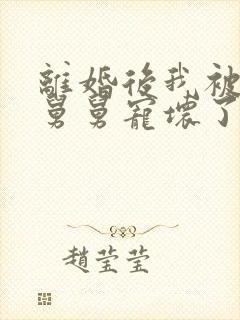 離婚後我被
舅舅寵壞了
趙莹莹